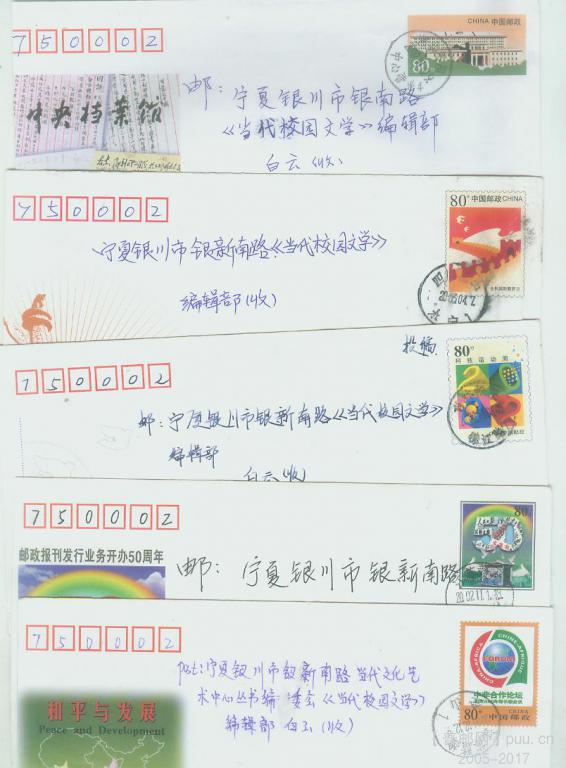 CHINA 中国邮政
750002
80分
邮：宁夏银川市银南路
《当代校园文学》编辑部
白云（收）
中央档案馆
80分 中国邮政 CHINA
750002
宁夏银川市银新南路《当代校园文学》
编辑部（收）
投稿
80分
科技活动周
750002
邮：宁夏银川市银新南路《当代校园文学》
编辑部
白云（收）
750002
80
邮政报刊发行业务开办50周年
邮：宁夏银川市银新南路
750002
CHINA-AFRICA
CHINE-AFRIQUE
FORUM
中非合作论坛
宁夏银川市银新南路当代文化艺
术中心丛书编委会《当代校园文学》
编辑部 白云（收）
CHINA
80分 中国邮政
和平与发展
Peace and Development
puu.cn
2005-2017